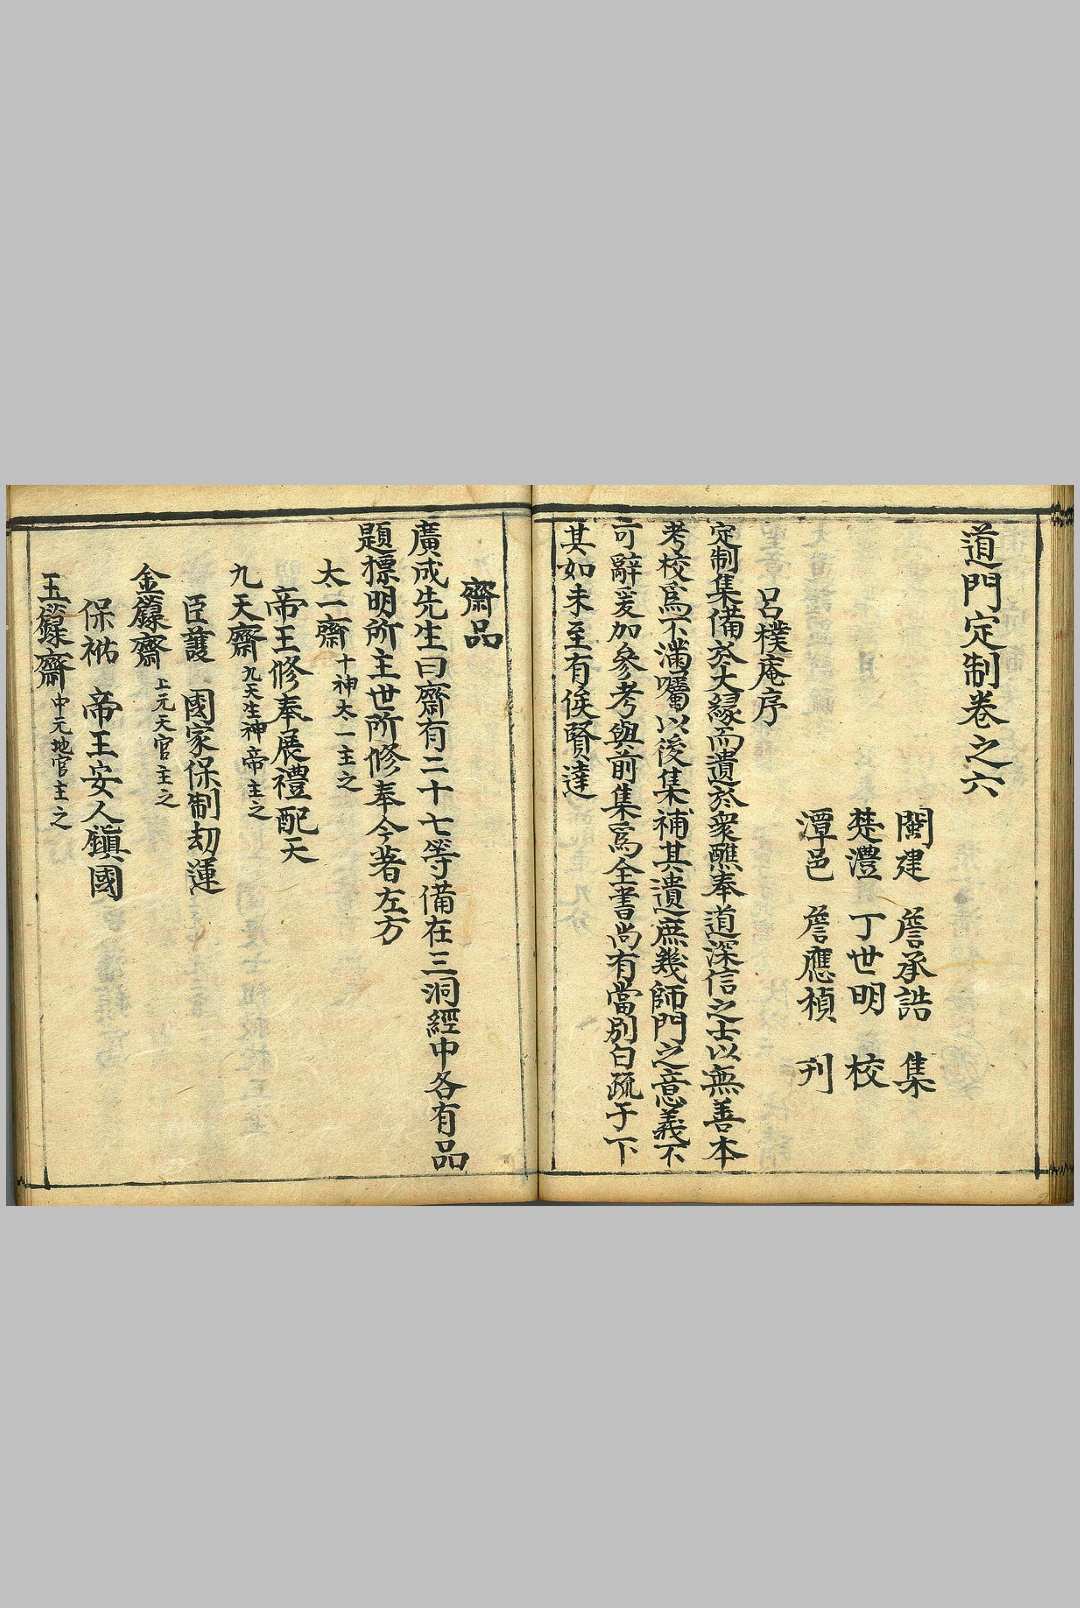 道門定制卷之六
閩建 詹承誥 集
楚澧 丁世明 校
潭邑 詹應禎 刊
呂樸庵序
定制集備於大緣而遺於衆醮奉道深信之士以無善本
考校爲不滿囑以後集補其遺庶幾師門之意義不
可辭爰加參考與前集爲全書尚有當別白疏于下
其如未至有俟賢達
齋品
廣成先生曰齋有二十七等備在三洞經中各有品
題標明所主世所修奉今著左方
太一齋 十神太一主之
帝王修奉展禮配天
九天齋 九天生神帝主之
臣護 國家保制劫運
金籙齋 上元天官主之
保祐 帝王安人鎭國
玉籙齋 中元地官主之